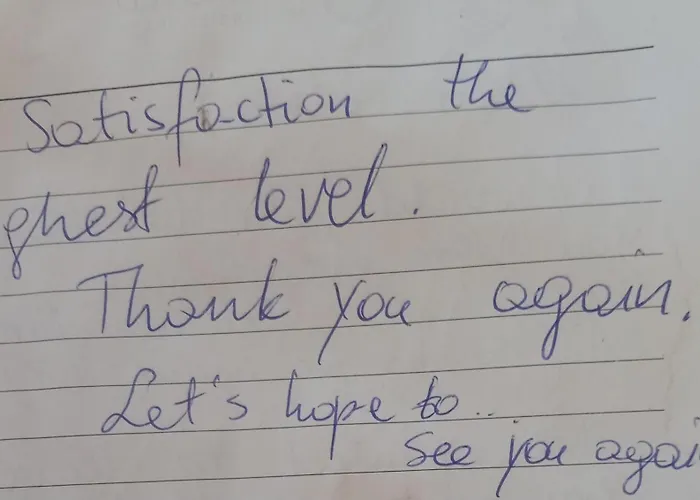 Satisfaction the
ghest level.
Thank you again.
Let's hope to..
see you agai